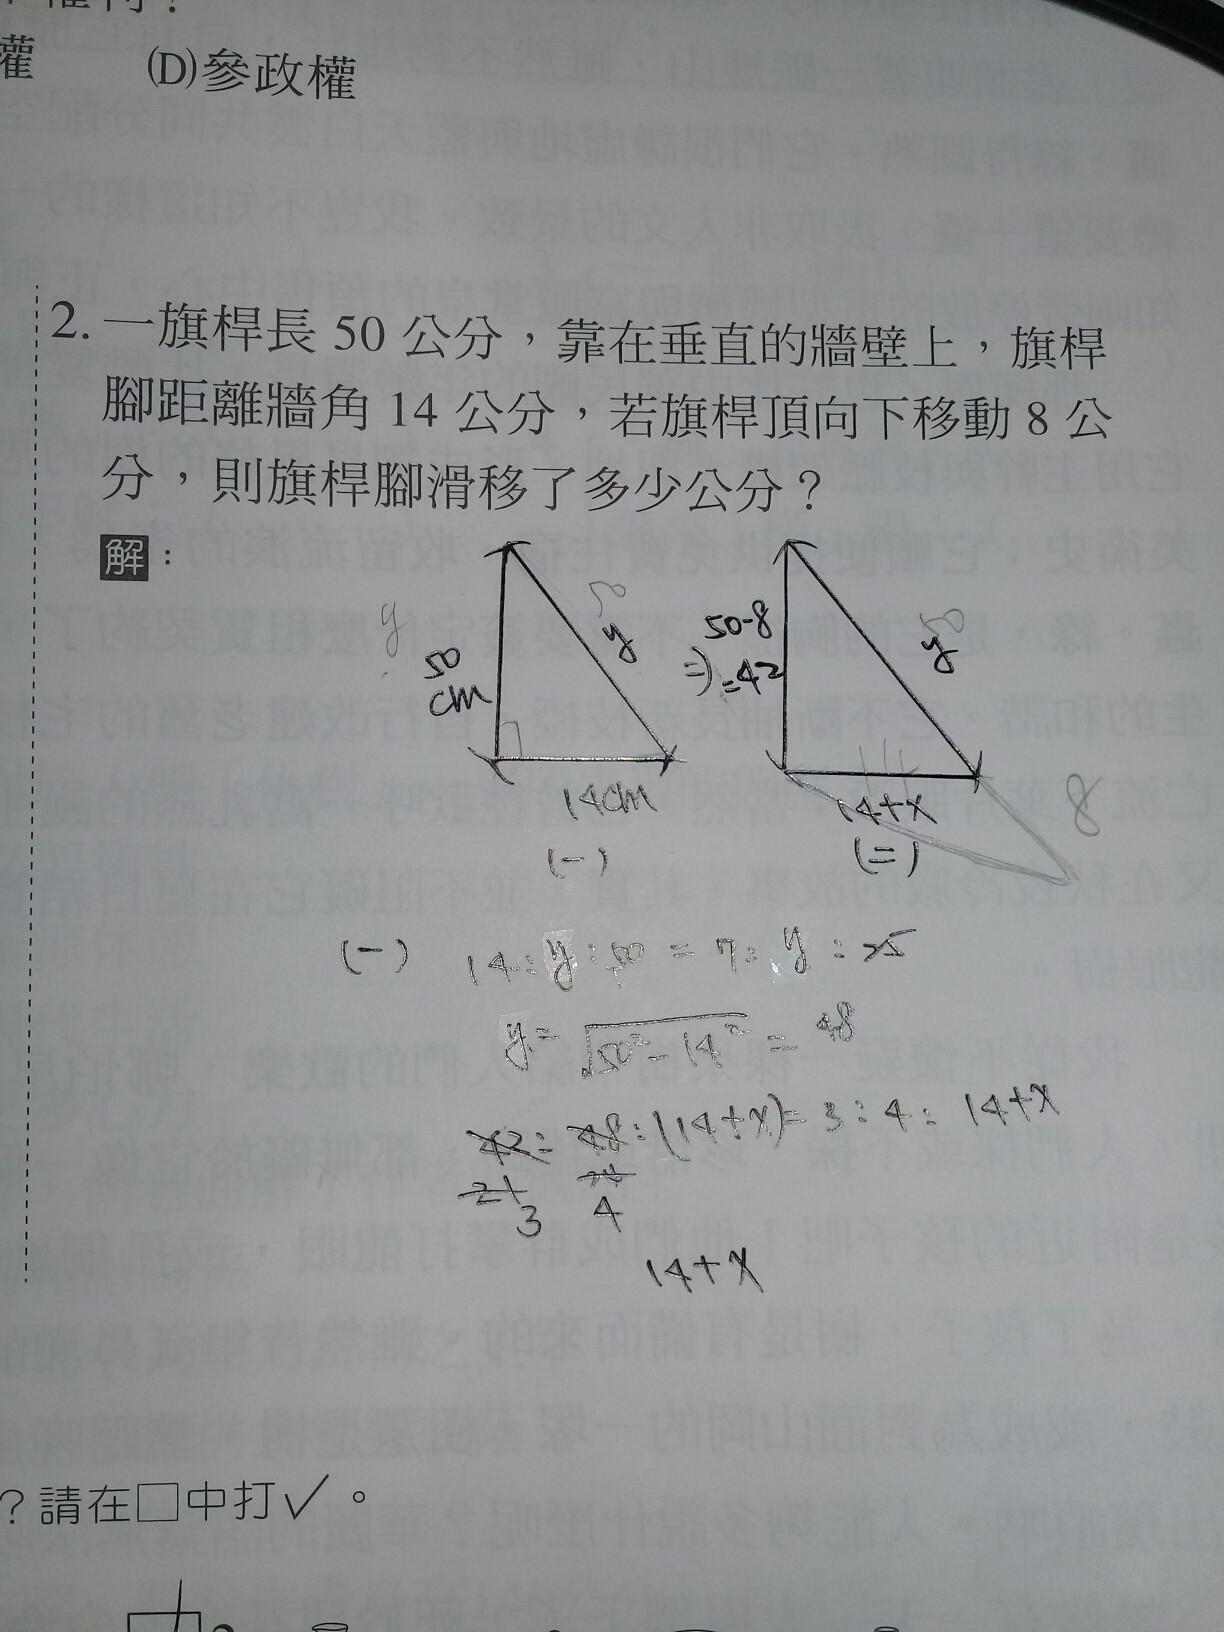 權 (D)參政權
2. 一旗桿長 50 公分，靠在垂直的牆壁上，旗桿
腳距離牆角 14 公分，若旗桿頂向下移動 8 公
分，則旗桿腳滑移了多少公分？
解：
y
50
cm
50
y
14cm
(一)
50-8
⇒=42
50
y
14+x
(二)
8
(一) 14:y:50=7:y:25
y=√50²-14²=48
42:48:(14+x)=3:4:14+x
21 24
3 4
14+x
？請在□中打✓。